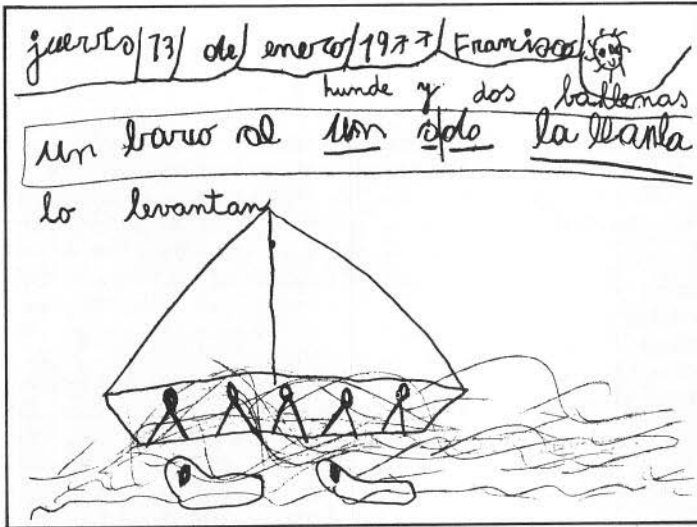 jueves/13/ de/ enero/1977/Francisco
hunde y dos ballenas
un barco se un s do la llanla
lo levantan